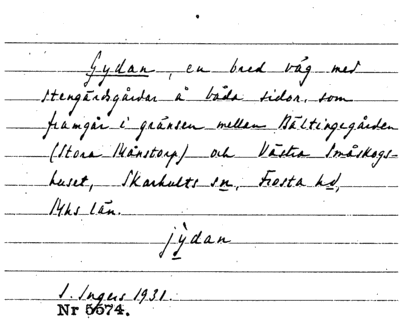 Gydan, en bred väg med
stengärdsgårdar å båda sidor, som
framgår i gränsen mellan Bältingegården
(Stora Månstorp) och Västra Småskogs-
huset, Skarhults sn, Frosta hd,
Mhs län.
jydan
I. Ingers 1931.
Nr 5574.